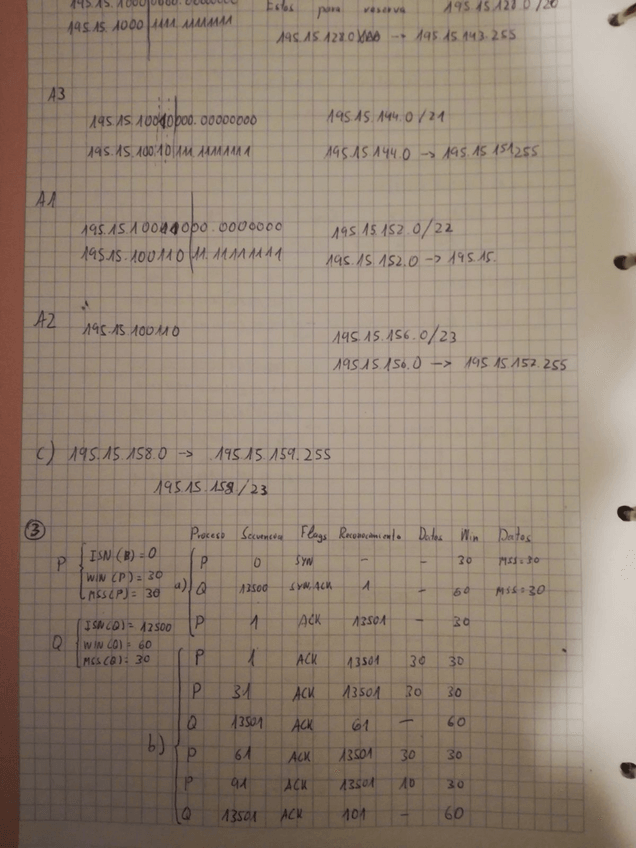 195.15.1000 0000.00000000
Estas para reserva 195.15.128.0/20
195.15.1000 1111.11111111
195.15.128.0 -> 195.15.143.255
A3
195.15.10010000.00000000 195.15.144.0/21
195.15.10010 111.11111111 195.15.144.0 -> 195.15.151.255
A1
195.15.10011000.0000000 195.15.152.0/22
195.15.100110 11.11111111 195.15.152.0 -> 195.15.
A2
195.15.100110 195.15.156.0/23
195.15.156.0 -> 195.15.157.255
c) 195.15.158.0 -> 195.15.159.255
195.15.158/23
③ Proceso Secuencia Flags Reconocimiento Datos Win Datos
P ISN(B)=0
WIN(P)=30
MSS(P)=30
a) P 0 SYN - - 30 MSS=30
Q 13500 SYN,ACK 1 - 60 MSS=30
P 1 ACK 13501 - 30
Q ISN(Q)=13500
WIN(Q)=60
MSS(Q)=30
b) P 1 ACK 13501 30 30
P 31 ACK 13501 30 30
Q 13501 ACK 61 - 60
P 61 ACK 13501 30 30
P 91 ACK 13501 10 30
Q 13501 ACK 101 - 60